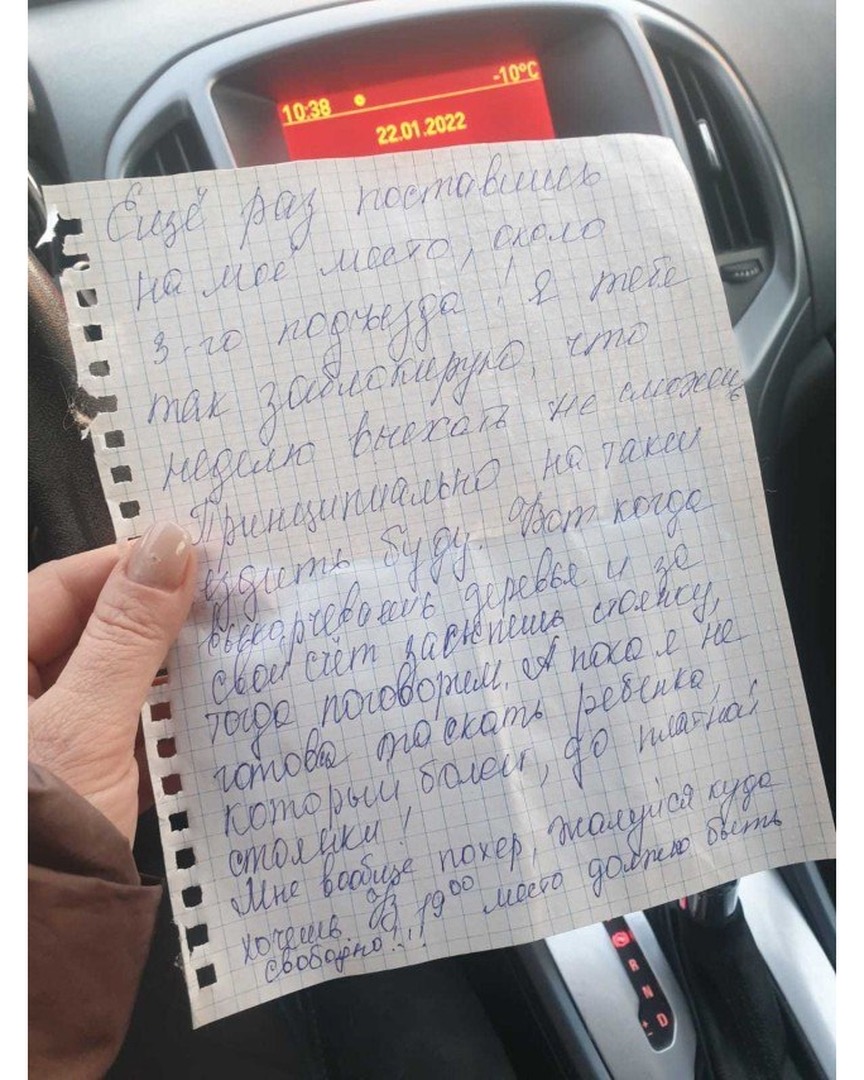 10:38 -10°C
22.01.2022
Ещё раз поставишь
на моё место, около
3-го подъезда! Я тебе
так заблокирую, что
неделю выехать не сможешь
Принципиально на такси
ездить буду. Вот когда
выкорчеваешь деревья и за
свой счёт засыпешь стоянку,
тогда поговорим. А пока я не
готова таскать ребёнка,
который болеет, до платной
стоянки!
Мне вообще похер, жалуйся куда
хочешь. В 19⁰⁰ место должно быть
свободно!!!
R
N
D
+
-